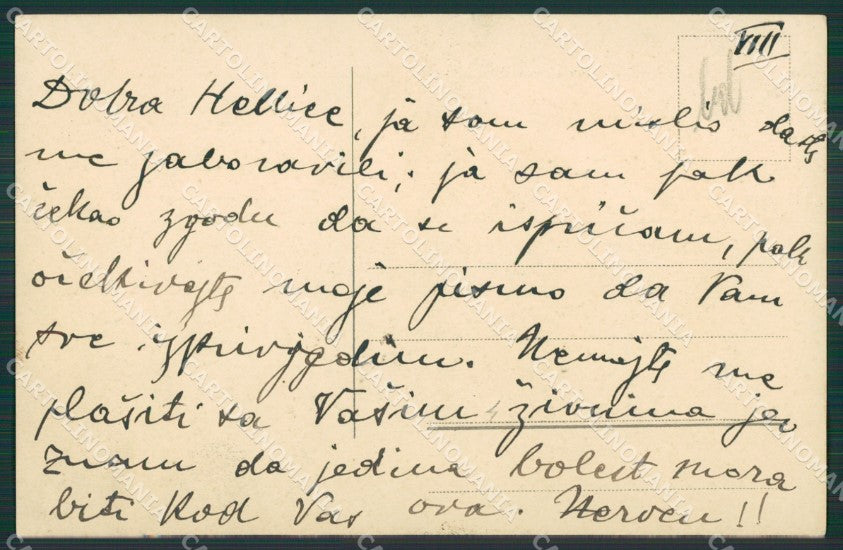 VIII
Dobra Hellice, ja sam mislio da ste
me zaboravili; ja sam pak
čekao zgodu da se ispričam, pak
očekivajte moje pismo da Vam
sve izpripovjedim. Nemojte me
plašiti sa Vašim živcima jer
znam da jedina bolest mora
biti kod Vas ova. Nerven!!
CARTOLINOMANIA